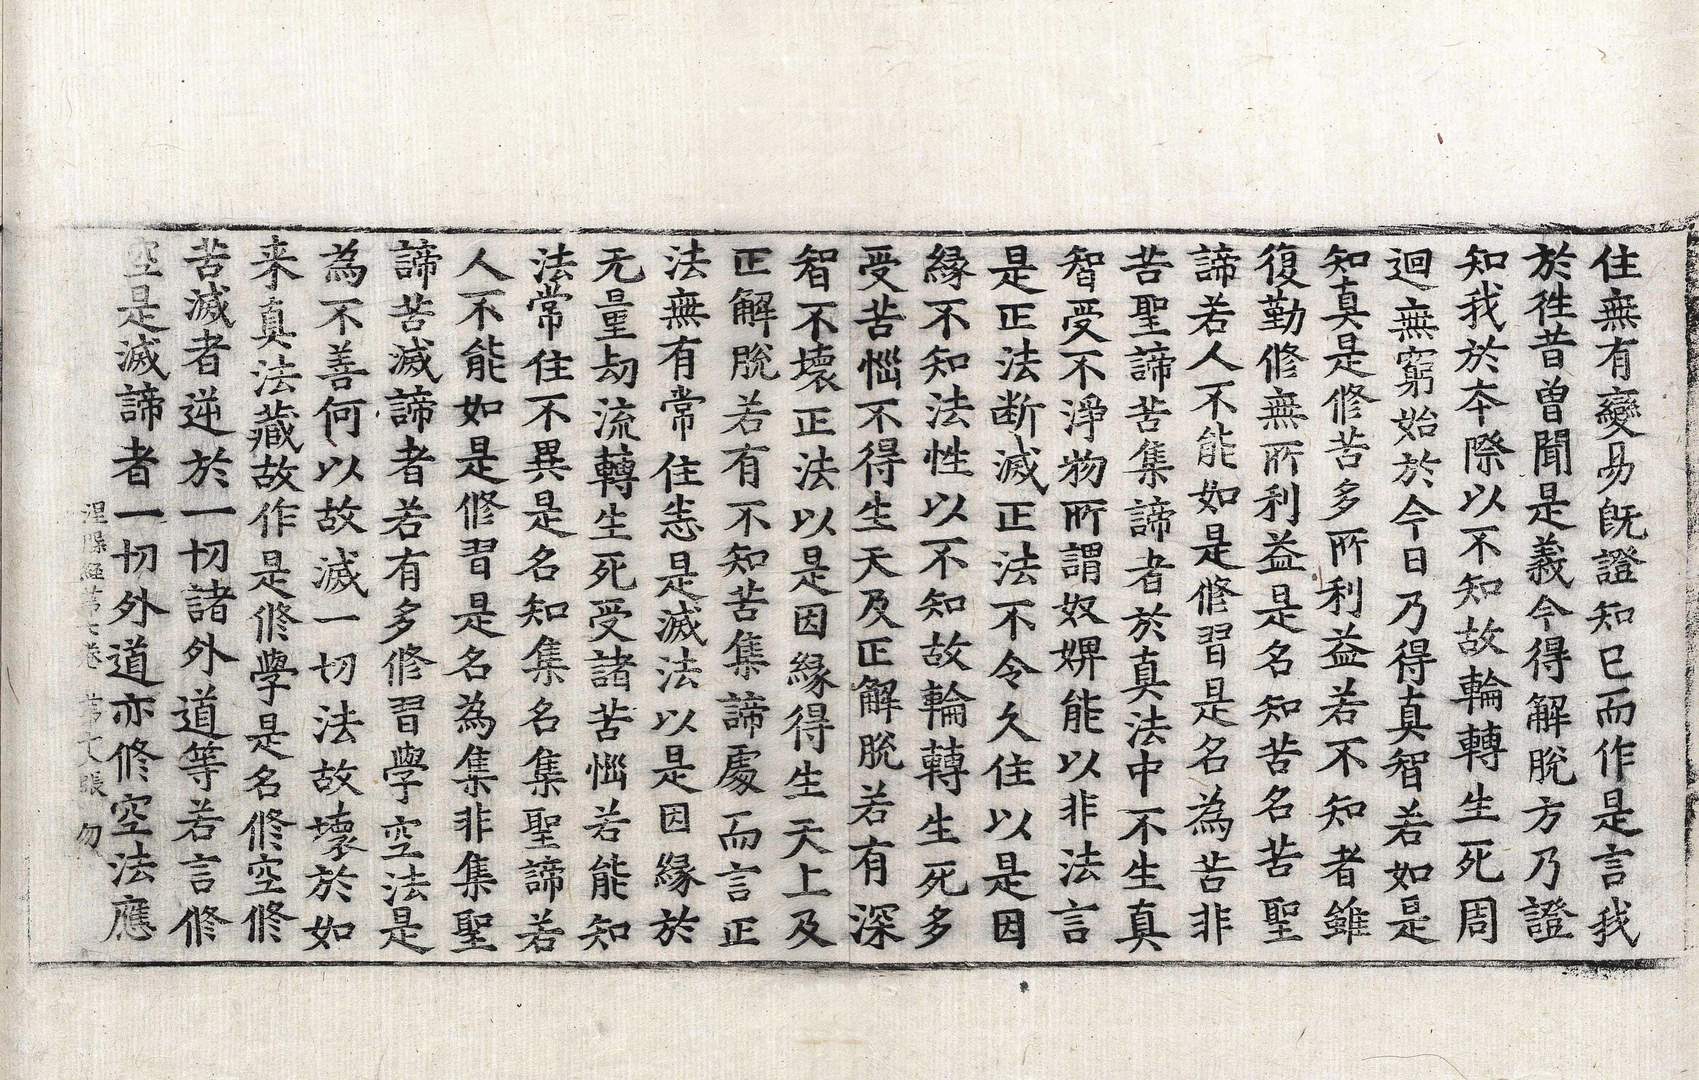 住無有變易旣證知已而作是言我
於徃昔曾聞是義今得解脫方乃證
知我於本際以不知故輪轉生死周
迴無窮始於今日乃得真智若如是
知真是修苦多所利益若不知者雖
復勤修無所利益是名知苦名苦聖
諦若人不能如是修習是名為苦非
苦聖諦苦集諦者於真法中不生真
智受不淨物所謂奴婢能以非法言
是正法断滅正法不令久住以是因
緣不知法性以不知故輪轉生死多
受苦惱不得生天及正解脫若有深
智不壞正法以是因緣得生天上及
正解脫若有不知苦集諦處而言正
法無有常住悉是滅法以是因緣於
无量劫流轉生死受諸苦惱若能知
法常住不異是名知集名集聖諦若
人不能如是修習是名為集非集聖
諦苦滅諦者若有多修習學空法是
為不善何以故滅一切法故壞於如
来真法藏故作是修學是名修空修
苦滅者逆於一切諸外道等若言修
空是滅諦者一切外道亦修空法應
涅槃經第 卷 第 張 勿